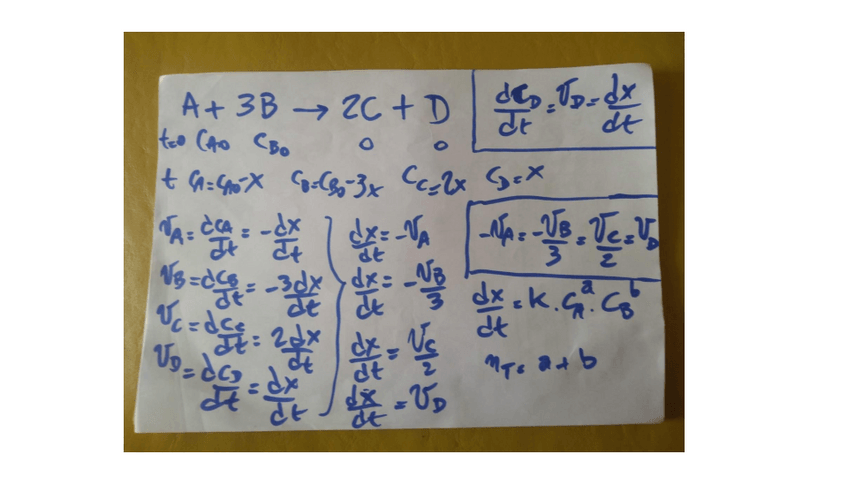 A + 3B → 2C + D
t=0 CA0 CB0 0 0
t CA=CA0-x CB=CB0-3x CC=2x CD=x
VA = dCA/dt = -dx/dt
VB = dCB/dt = -3dx/dt
VC = dCC/dt = 2dx/dt
VD = dCD/dt = dx/dt
dx/dt = -VA
dx/dt = -VB/3
dx/dt = VC/2
dx/dt = VD
dCD/dt = VD = dx/dt
-VA = -VB/3 = VC/2 = VD
dx/dt = K . CA^a . CB^b
nT = a + b